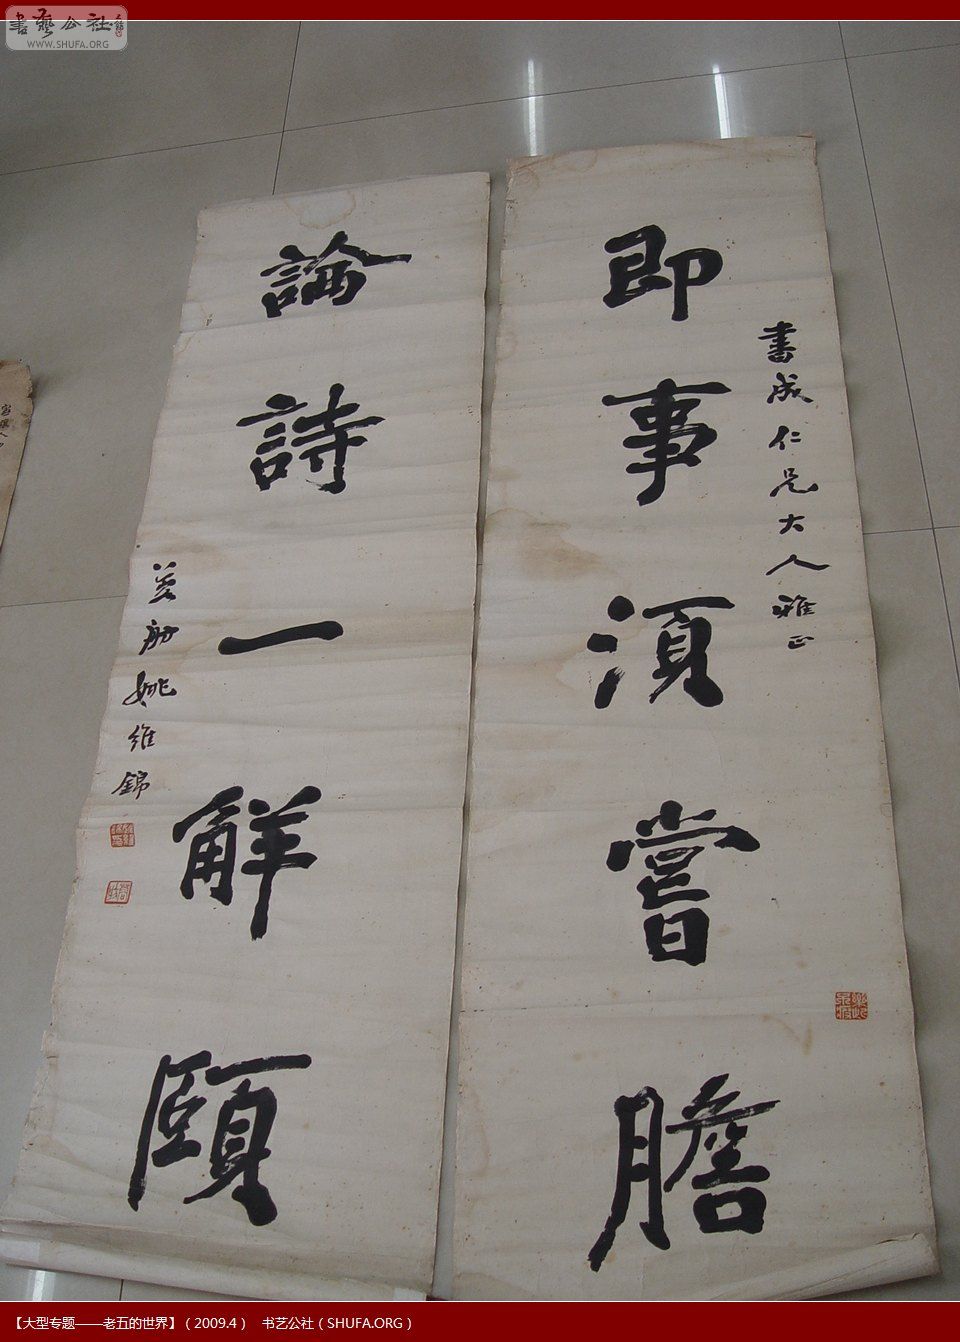 書藝公社
WWW.SHUFA.ORG
書成仁兄大人雅正
即事須嘗膽
論詩一解頤
姚維錦
【大型专题——老五的世界】（2009.4） 书艺公社（SHUFA.ORG）